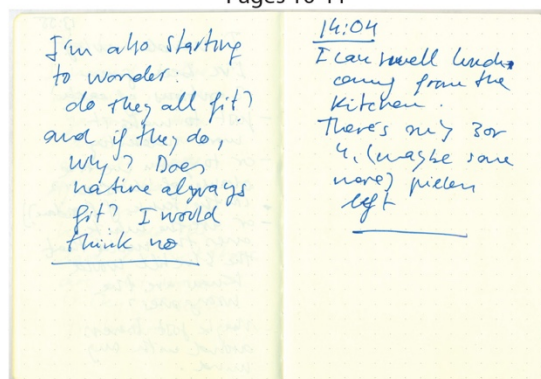 Pages 10-11
I'm also starting
to wonder:
do they all fit?
and if they do,
why? Does
native always
fit? I would
think no
14:04
I can smell lunch
coming from the
kitchen.
There's only 3 or
4, (maybe some
more) pieces
left